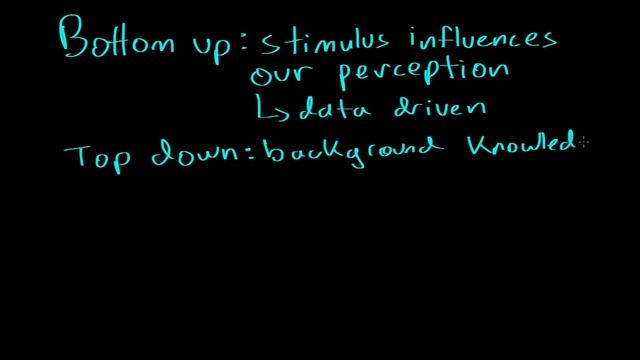 Bottom up: stimulus influences
our perception
↳ data driven
Top down: background Knowled